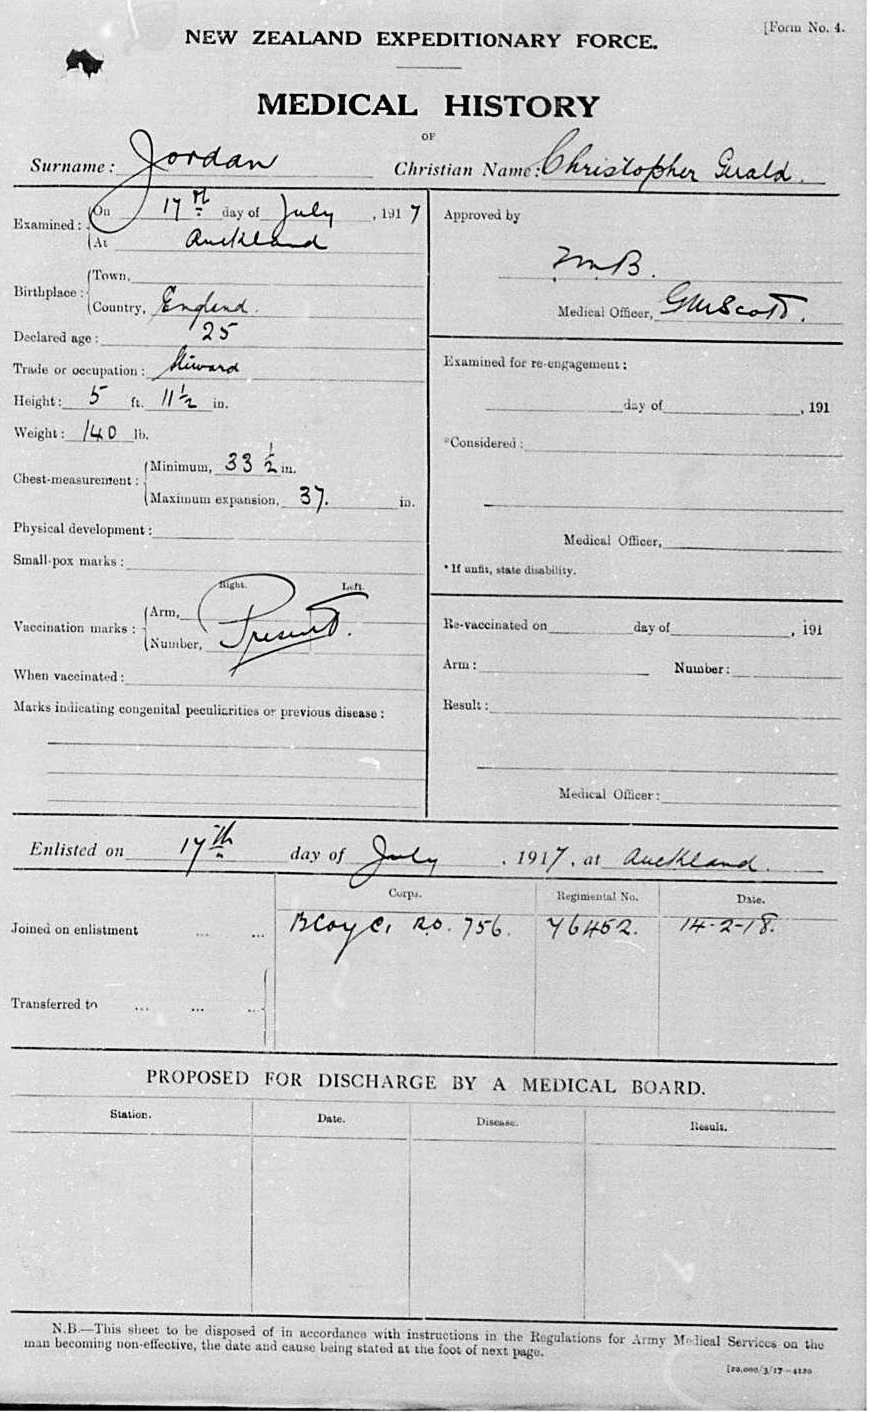 [Form No. 4.
NEW ZEALAND EXPEDITIONARY FORCE.
MEDICAL HISTORY
OF
Surname: Jordan Christian Name: Christopher Gerald.
Examined: On 17th day of July, 1917
At Auckland
Birthplace: Town,
Country, England.
Declared age: 25
Trade or occupation: Steward
Height: 5 ft. 11 1/2 in.
Weight: 140 lb.
Chest-measurement: Minimum, 33 1/2 in.
Maximum expansion, 37. in.
Physical development:
Small-pox marks:
Right. Left.
Vaccination marks: Arm,
Number, Present.
When vaccinated:
Marks indicating congenital peculiarities or previous disease:
Approved by
M.B.
Medical Officer, GWScott.
Examined for re-engagement:
day of , 191
*Considered:
Medical Officer,
* If unfit, state disability.
Re-vaccinated on day of , 191
Arm: Number:
Result:
Medical Officer:
Enlisted on 17th day of July, 1917, at Auckland.
Corps. Regimental No. Date.
Joined on enlistment ... ... B Coy C, R.O. 756. 76452. 14-2-18.
Transferred to ... ... ...
PROPOSED FOR DISCHARGE BY A MEDICAL BOARD.
Station. Date. Disease. Result.
N.B.—This sheet to be disposed of in accordance with instructions in the Regulations for Army Medical Services on the
man becoming non-effective, the date and cause being stated at the foot of next page.
[20,000/3/17—4120